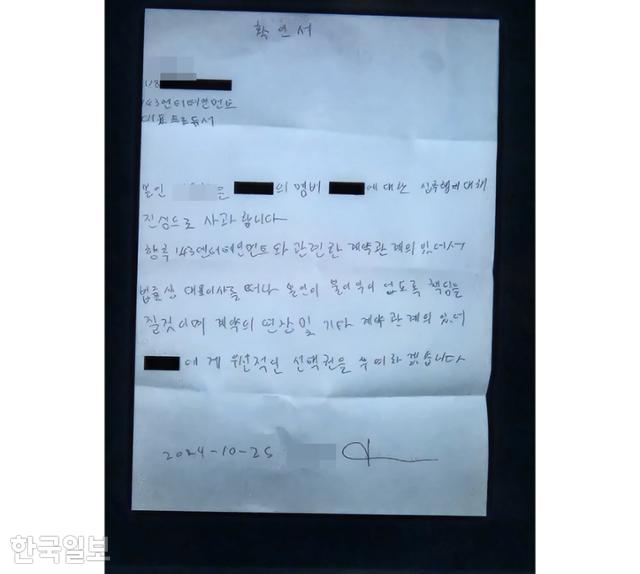 확인서
143엔터테인먼트
대표 프로듀서
본인 은 의 멤버 에 대한 성추행에 대해
진심으로 사과합니다
향후 143엔터테인먼트와 관련한 계약관계의 있어서
법률상 대표이사를 떠나 본인이 불이익이 없도록 책임을
질것이며 계약의 연장 및 기타 계약관계의 있어
에게 우선적인 선택권을 부여하겠습니다
2024-10-25
한국일보